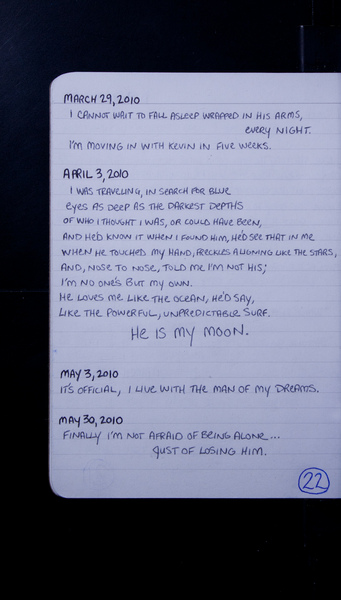 MARCH 29, 2010
I CANNOT WAIT TO FALL ASLEEP WRAPPED IN HIS ARMS,
EVERY NIGHT.
I'M MOVING IN WITH KEVIN IN FIVE WEEKS.
APRIL 3, 2010
I WAS TRAVELING, IN SEARCH FOR BLUE
EYES AS DEEP AS THE DARKEST DEPTHS
OF WHO I THOUGHT I WAS, OR COULD HAVE BEEN,
AND HE'D KNOW IT WHEN I FOUND HIM, HE'D SEE THAT IN ME
WHEN HE TOUCHED MY HAND, FRECKLES ALIGNING LIKE THE STARS,
AND, NOSE TO NOSE, TOLD ME I'M NOT HIS;
I'M NO ONE'S BUT MY OWN.
HE LOVES ME LIKE THE OCEAN, HE'D SAY,
LIKE THE POWERFUL, UNPREDICTABLE SURF.
HE IS MY MOON.
MAY 3, 2010
IT'S OFFICIAL, I LIVE WITH THE MAN OF MY DREAMS.
MAY 30, 2010
FINALLY I'M NOT AFRAID OF BEING ALONE...
JUST OF LOSING HIM.
22